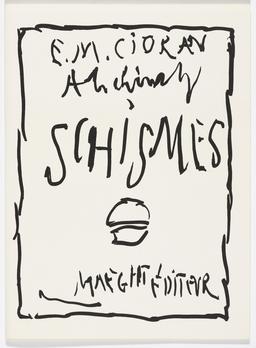 E.M. CIORAN
Alechinsky
SCHISMES
MAEGHT ÉDITEUR